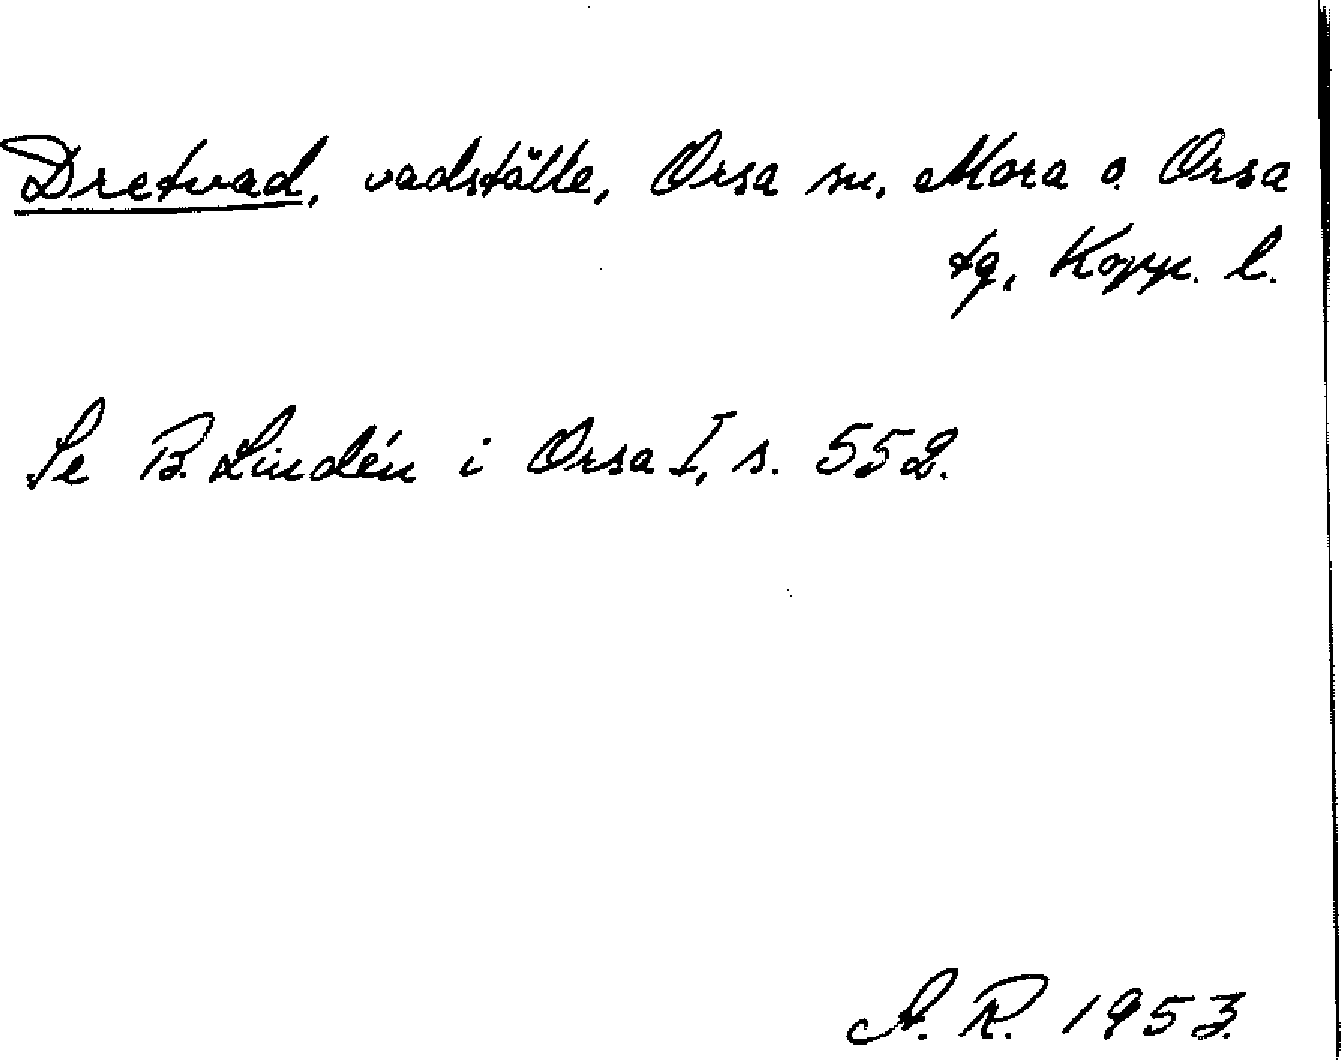 Dretvad, vadställe, Orsa sn, Mora o. Orsa
tg, Kopp. l.
Se B. Lindén i Orsa I, s. 552.
A. R. 1953.